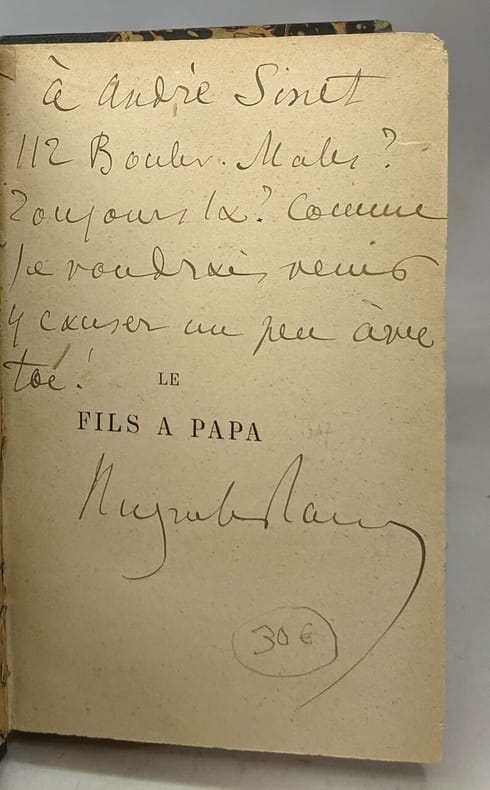 à André Sinet
112 Boulev. Males?
Toujours là? Comme
je voudrais venir
y causer un peu avec
toi!
LE
FILS A PAPA
30€